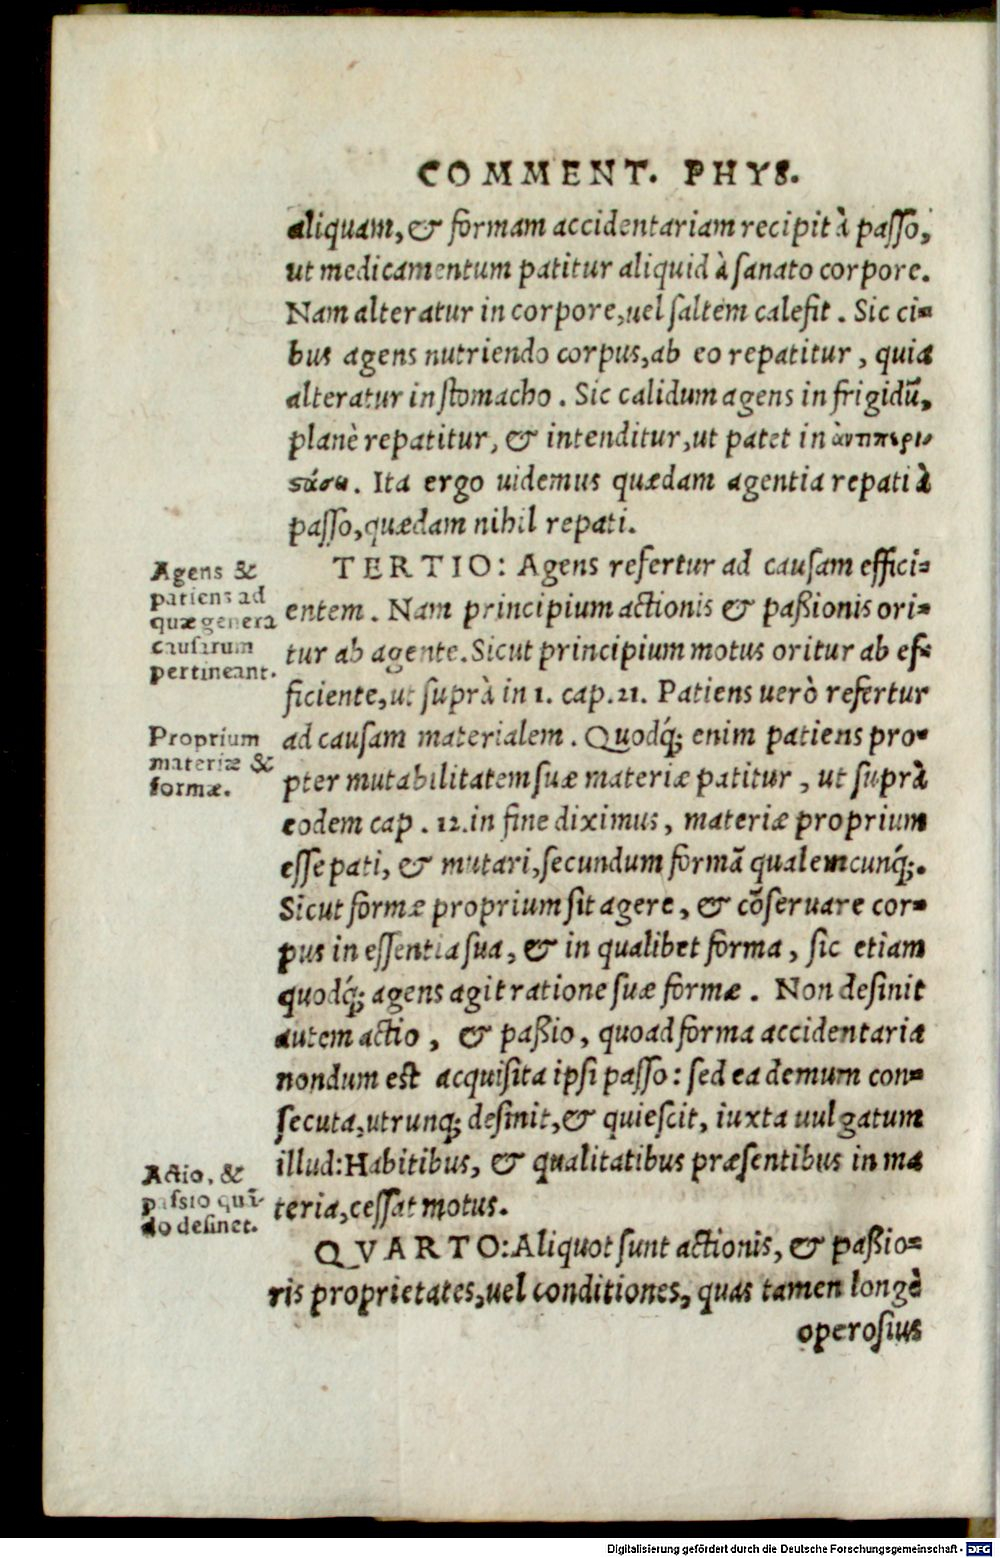 COMMENT. PHYS.
aliquam, & formam accidentariam recipit à passo,
ut medicamentum patitur aliquid à sanato corpore.
Nam alteratur in corpore, uel saltem calefit. Sic ci-
bus agens nutriendo corpus, ab eo repatitur, quia
alteratur in stomacho. Sic calidum agens in frigidū,
planè repatitur, & intenditur, ut patet in ἀντιπερι-
στάσει. Ita ergo uidemus quædam agentia repati à
passo, quædam nihil repati.
Agens &
patiens ad
quæ genera
causarum
pertineant.
TERTIO: Agens refertur ad causam effici-
entem. Nam principium actionis & paßionis ori-
tur ab agente. Sicut principium motus oritur ab ef-
ficiente, ut suprà in 1. cap. 21. Patiens uerò refertur
Proprium
materiæ &
formæ.
ad causam materialem. Quodq́; enim patiens pro-
pter mutabilitatem suæ materiæ patitur, ut suprà
eodem cap. 12. in fine diximus, materiæ proprium
esse pati, & mutari, secundum formā qualemcunq́;.
Sicut formæ proprium sit agere, & cōseruare cor-
pus in essentia sua, & in qualibet forma, sic etiam
quodq́; agens agit ratione suæ formæ. Non desinit
autem actio, & paßio, quoad forma accidentaria
nondum est acquisita ipsi passo: sed ea demum con-
secuta, utrunq; desinit, & quiescit, iuxta uulgatum
illud: Habitibus, & qualitatibus præsentibus in ma
teria, cessat motus.
Actio, &
passio quā-
do desinet.
QVARTO: Aliquot sunt actionis, & paßio-
ris proprietates, uel conditiones, quas tamen longè
operosius
Digitalisierung gefördert durch die Deutsche Forschungsgemeinschaft - DFG